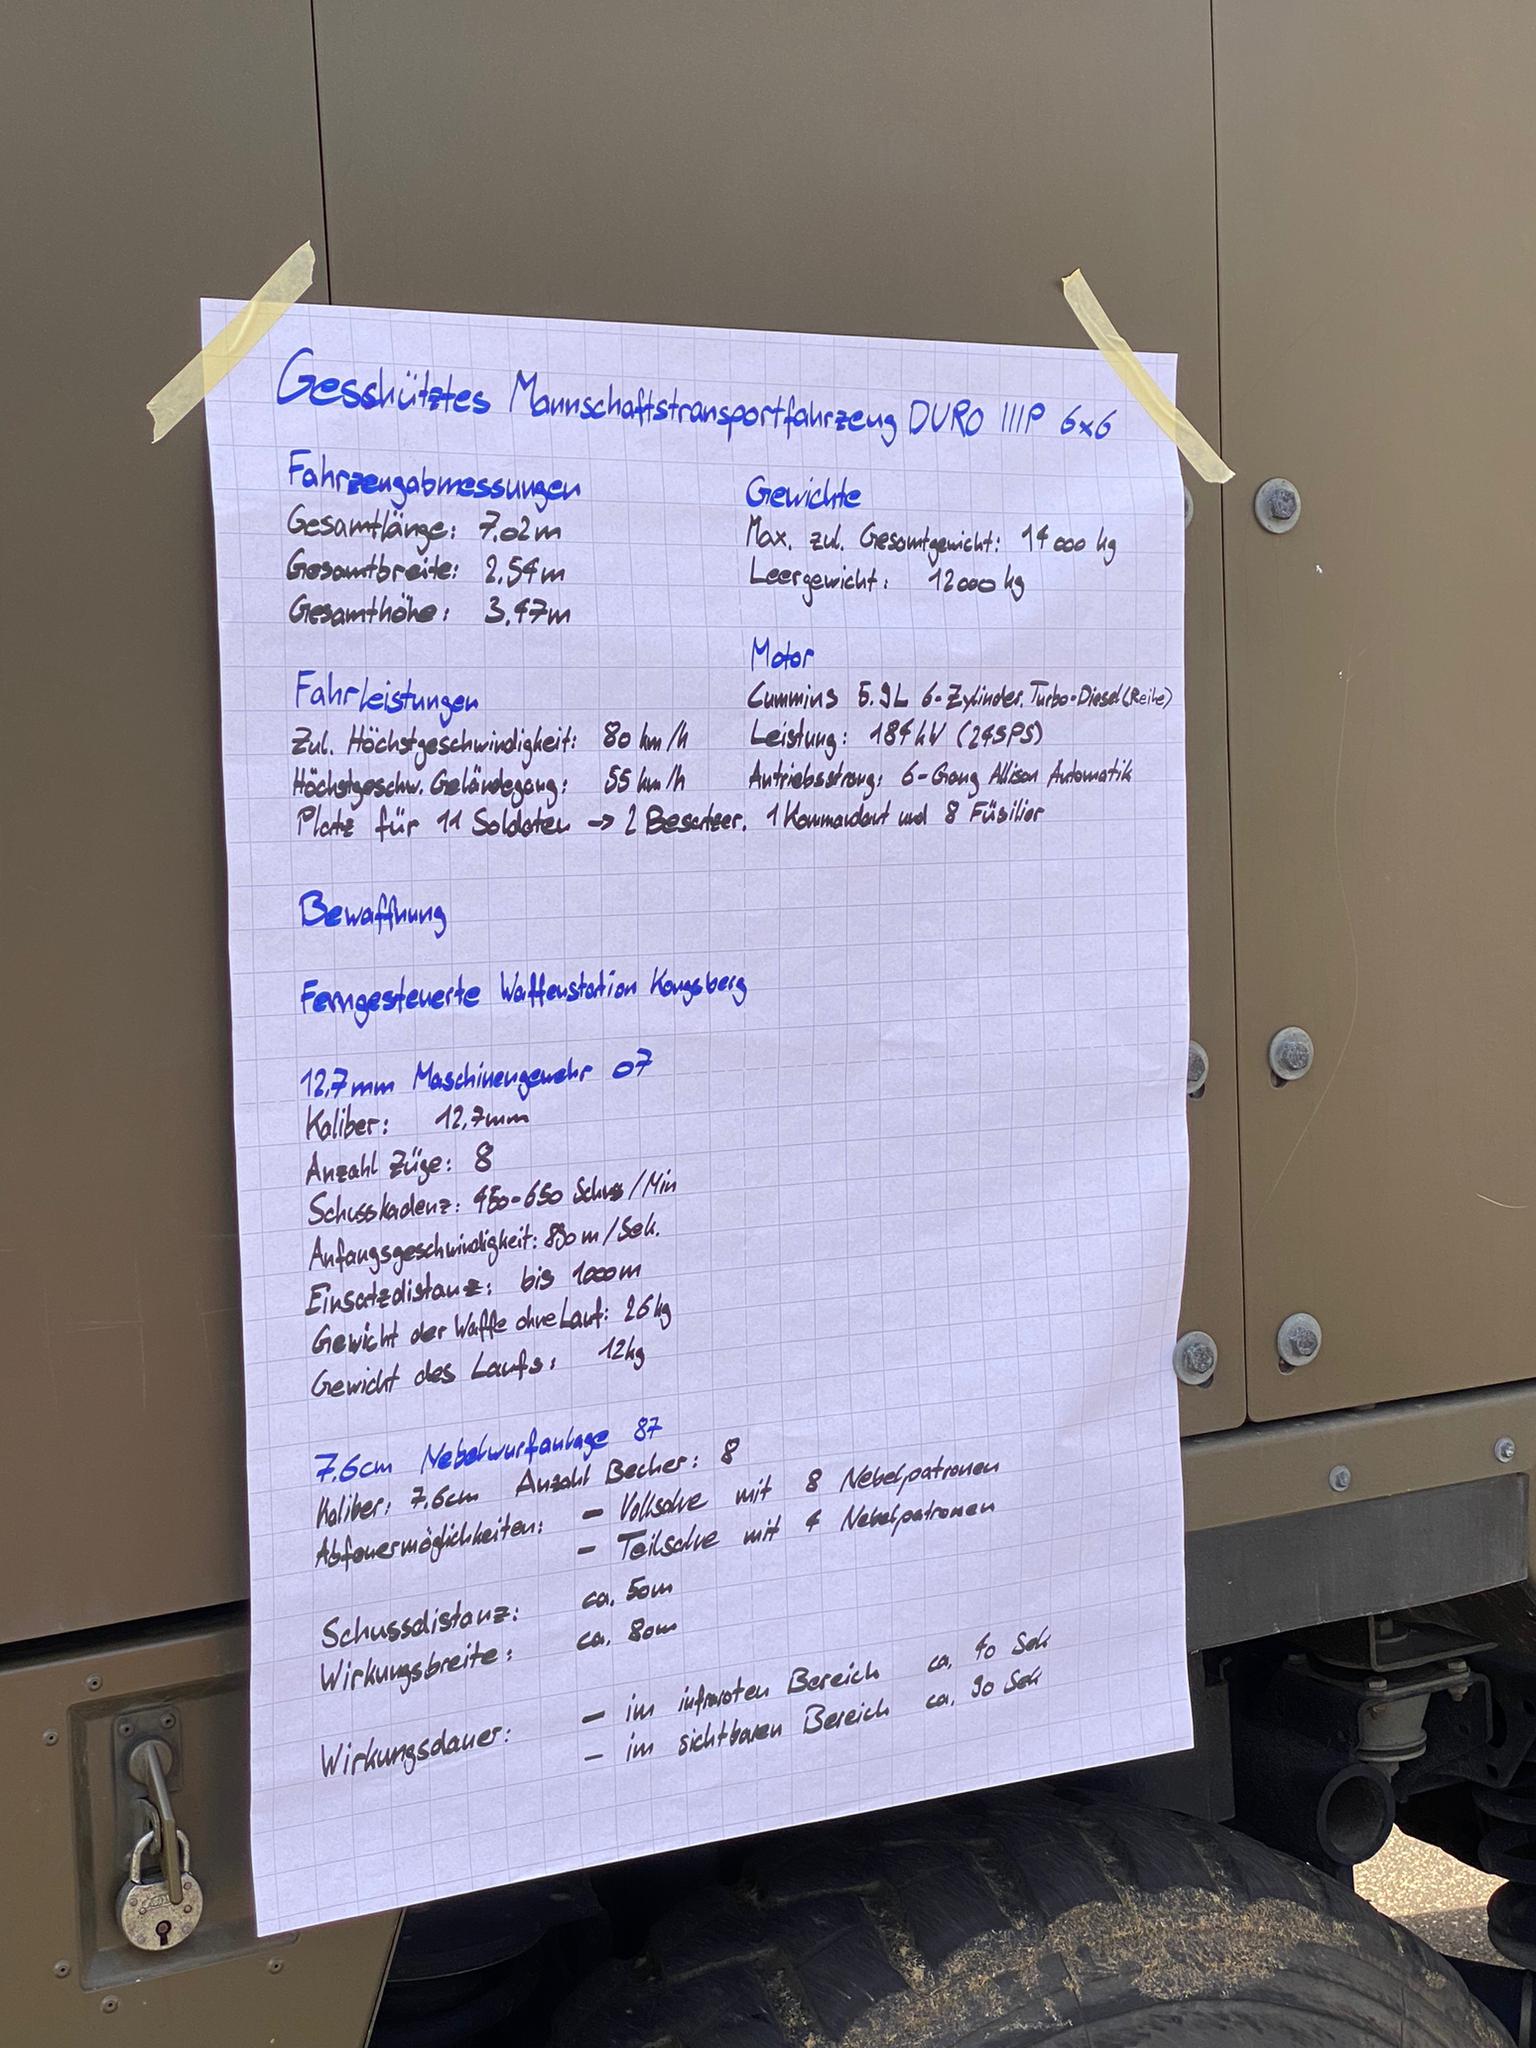 Gesshütztes Mannschaftstransportfahrzeug DURO IIIP 6x6
Fahrzeugabmessungen
Gesamtlänge: 7.02m
Gesamtbreite: 2.54m
Gesamthöhe: 3.47m
Gewichte
Max. zul. Gesamtgewicht: 14000 kg
Leergewicht: 12000 kg
Motor
Cummins 5.9L 6-Zylinder Turbo-Diesel (Reihe)
Leistung: 184kW (245PS)
Antriebsstrang: 6-Gang Allison Automatik
Fahrleistungen
Zul. Höchstgeschwindigkeit: 80 km/h
Höchstgeschw. Geländegang: 55 km/h
Platz für 11 Soldaten → 2 Besatzer, 1 Kommandant und 8 Füsilier
Bewaffnung
Ferngesteuerte Waffenstation Kongsberg
12,7mm Maschinengewehr 07
Kaliber: 12,7mm
Anzahl Züge: 8
Schusskadenz: 450-650 Schuss/Min
Anfangsgeschwindigkeit: 890m/Sek.
Einsatzdistanz: bis 1000m
Gewicht der Waffe ohne Lauf: 26kg
Gewicht des Laufs: 12kg
7,6cm Nebelwurfanlage 87
Kaliber: 7,6cm Anzahl Becher: 8
Abfeuermöglichkeiten: - Vollsalve mit 8 Nebelpatronen
- Teilsalve mit 4 Nebelpatronen
Schussdistanz: ca. 50m
Wirkungsbreite: ca. 80m
Wirkungsdauer: - im infraroten Bereich ca. 40 Sek
- im sichtbaren Bereich ca. 90 Sek